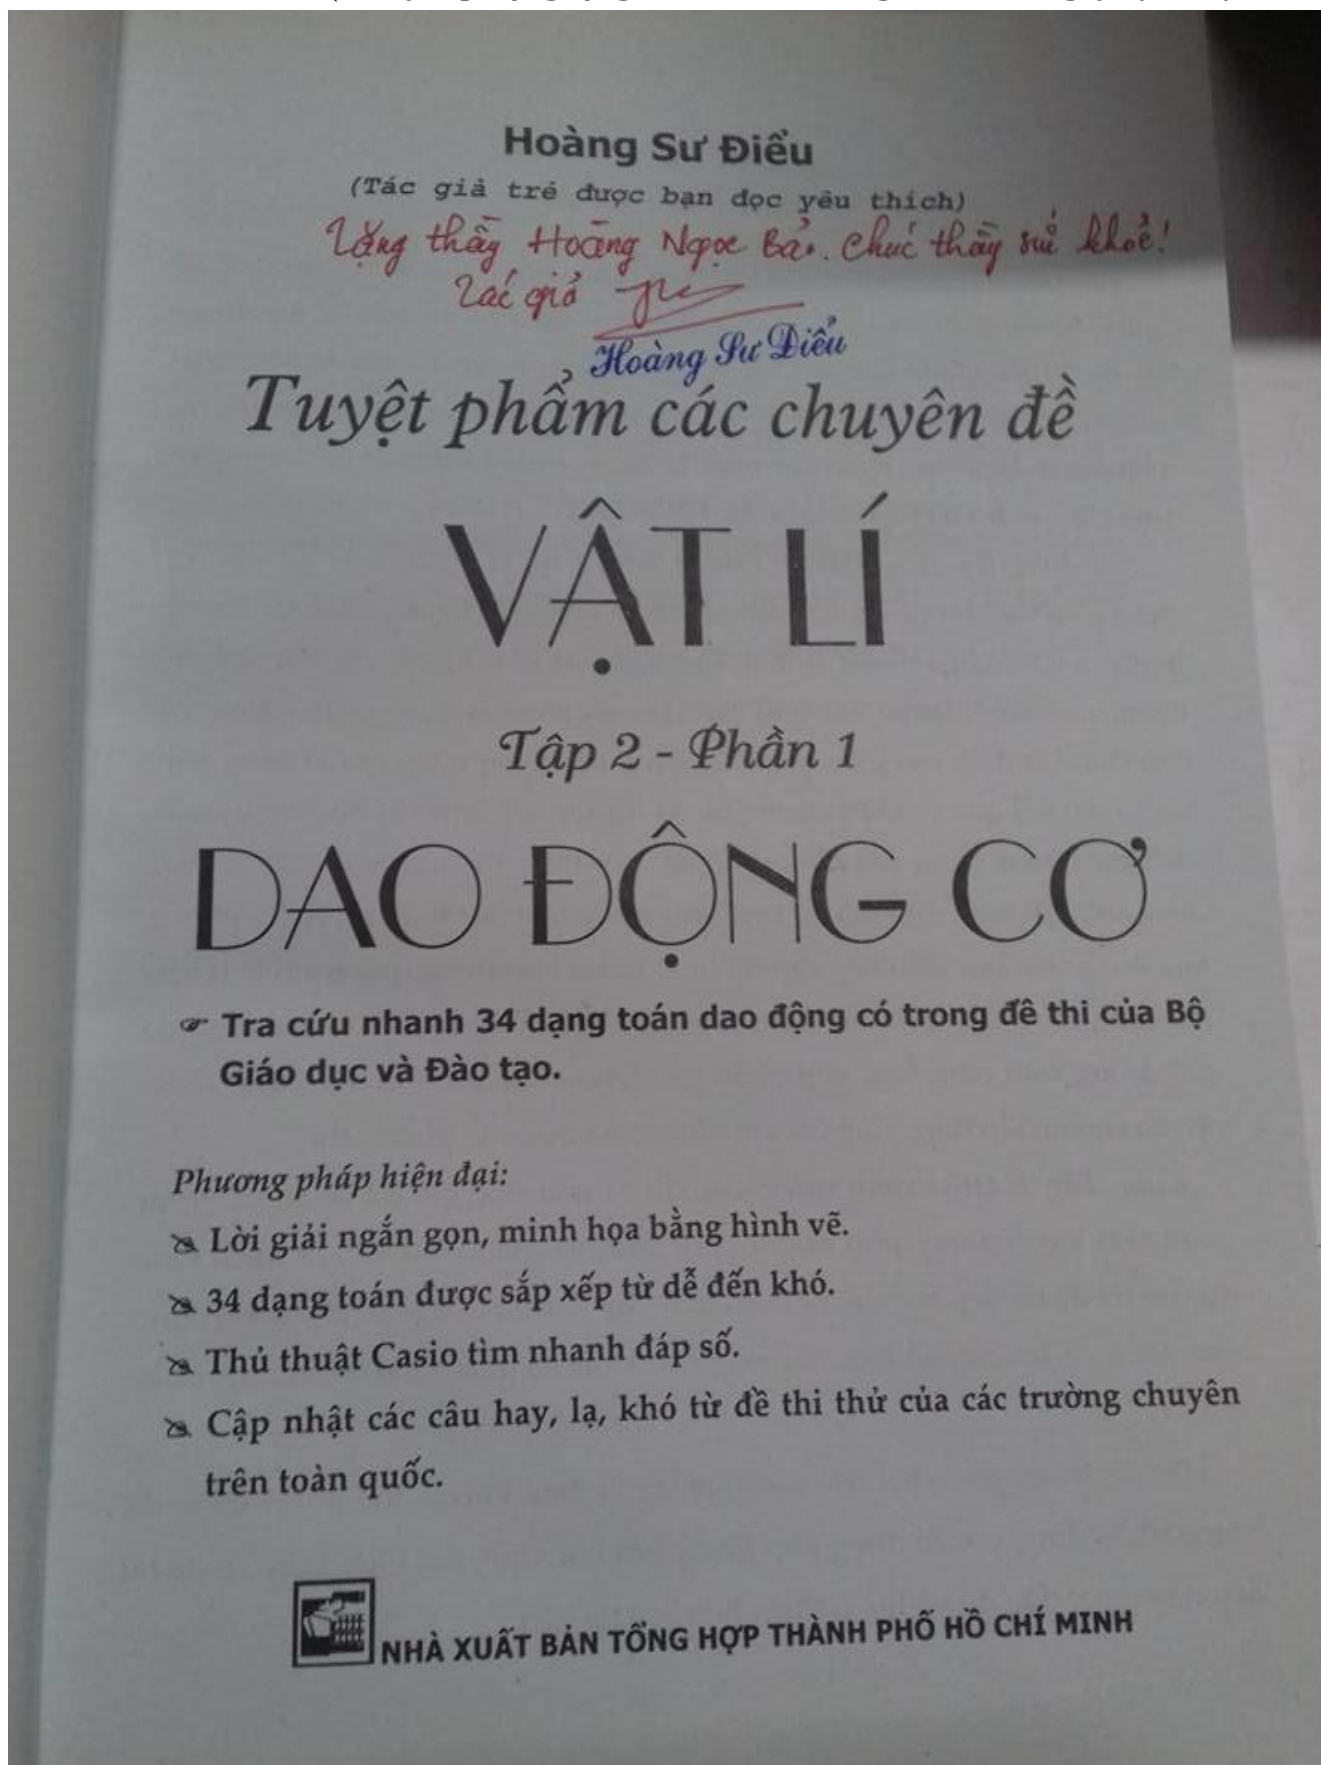 Hoàng Sư Điểu
(Tác giả trẻ được bạn đọc yêu thích)
Tặng thầy Hoàng Ngọc Bảo. Chúc thầy sức khoẻ!
Tác giả
Hoàng Sư Điểu
Tuyệt phẩm các chuyên đề
VẬT LÍ
Tập 2 - Phần 1
DAO ĐỘNG CƠ
☞ Tra cứu nhanh 34 dạng toán dao động có trong đề thi của Bộ
Giáo dục và Đào tạo.
Phương pháp hiện đại:
Lời giải ngắn gọn, minh họa bằng hình vẽ.
34 dạng toán được sắp xếp từ dễ đến khó.
Thủ thuật Casio tìm nhanh đáp số.
Cập nhật các câu hay, lạ, khó từ đề thi thử của các trường chuyên
trên toàn quốc.
NHÀ XUẤT BẢN TỔNG HỢP THÀNH PHỐ HỒ CHÍ MINH